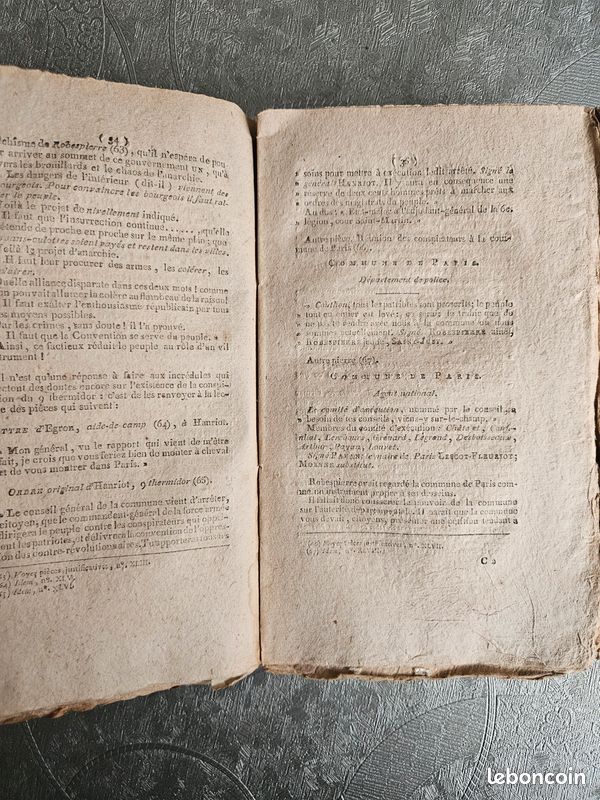 (34)
chisme de Robespierre (63), qu'il n'espère de pou-
r arriver au sommet de ce gouvernement UN, qu'à
vers les brouillards et le chaos de l'anarchie.
Les dangers de l'intérieur (dit-il) viennent des
bourgeois. Pour convaincre les bourgeois il faut ral-
r le peuple.
oilà le projet de nivellement indiqué.
Il faut que l'insurrection continue......, qu'elle
étende de proche en proche sur le même plan; que
sans-culottes soient payés et restent dans les villes.
oilà le projet d'anarchie.
Il faut leur procurer des armes, les colérer, les
lairer.
Quelle alliance disparate dans ces deux mots! comme
on pouvait allumer la colère au flambeau de la raison!
Il faut exalter l'enthousiasme républicain par tous
es moyens possibles.
ar les crimes, sans doute! il l'a prouvé.
Il faut que la Convention se serve du peuple. »
Ainsi, ce factieux réduit le peuple au rôle d'un vil
strument!
l n'est qu'une réponse à faire aux incrédules qui
ectent des doutes encore sur l'existence de la conspi-
on du 9 thermidor: c'est de les renvoyer à la lec-
e des pièces qui suivent:
TTRE d'Egron, aide-de-camp (64), à Hanriot.
Mon général, vu le rapport qui vient de m'être
fait, je crois que vous seriez bien de monter à cheval
et de vous montrer dans Paris. »
ORDRE original d'Hanriot, 9 thermidor (65).
Le conseil général de la commune vient d'arrêter,
citoyen, que le commandant-général de la force armée
dirigera le peuple contre les conspirateurs qui oppri-
ment les patriotes, et délivrera la convention de l'oppres-
ion des contre-révolutionnaires. Tu apporteras tous tes
63) Voyez pièces justificatives, n°. XLIII.
64) Idem, n°. XLV.
65) Idem, n°. XLVI.
» soins pour mettre à exécution ledit arrêté. Signé le
» général HANRIOT. Il y aura en conséquence une
» réserve de deux cents hommes prêts à marcher aux
» ordres des magistrats du peuple.
» légion, cour Saint-Martin. »
Autre pièce. Réunion des conspirateurs à la com-
mune de Paris
COMMUNE DE PARIS.
Département de police.
» Couthon, tous les patriotes sont proscrits; le peuple
» tout entier est levé; ce serait le trahir que de
» ne pas te rendre avec nous à la commune où nous
» sommes actuellement. Signé ROBESPIERRE aîné,
» ROBESPIERRE jeune, SAINT-JUST. »
Autre pièce (67).
COMMUNE DE PARIS.
Agent national.
» Le comité d'exécution, nommé par le conseil, a
» besoin de tes conseils, viens-y sur-le-champ. »
Membres du comité d'exécution:
Arthur, Payan, Louvet.
Signé PAYAN; le maire de Paris LESCOT-FLEURIOT;
MOENNE substitut.
Robespierre avait regardé la commune de Paris com-
me un instrument propre à ses desseins.
Il fallait donc conserver l'ascendant de la commune
sur l'autorité départementale. Il paraît que la commune
vous devait, citoyens, présenter une pétition tendant à
C 2
leboncoin